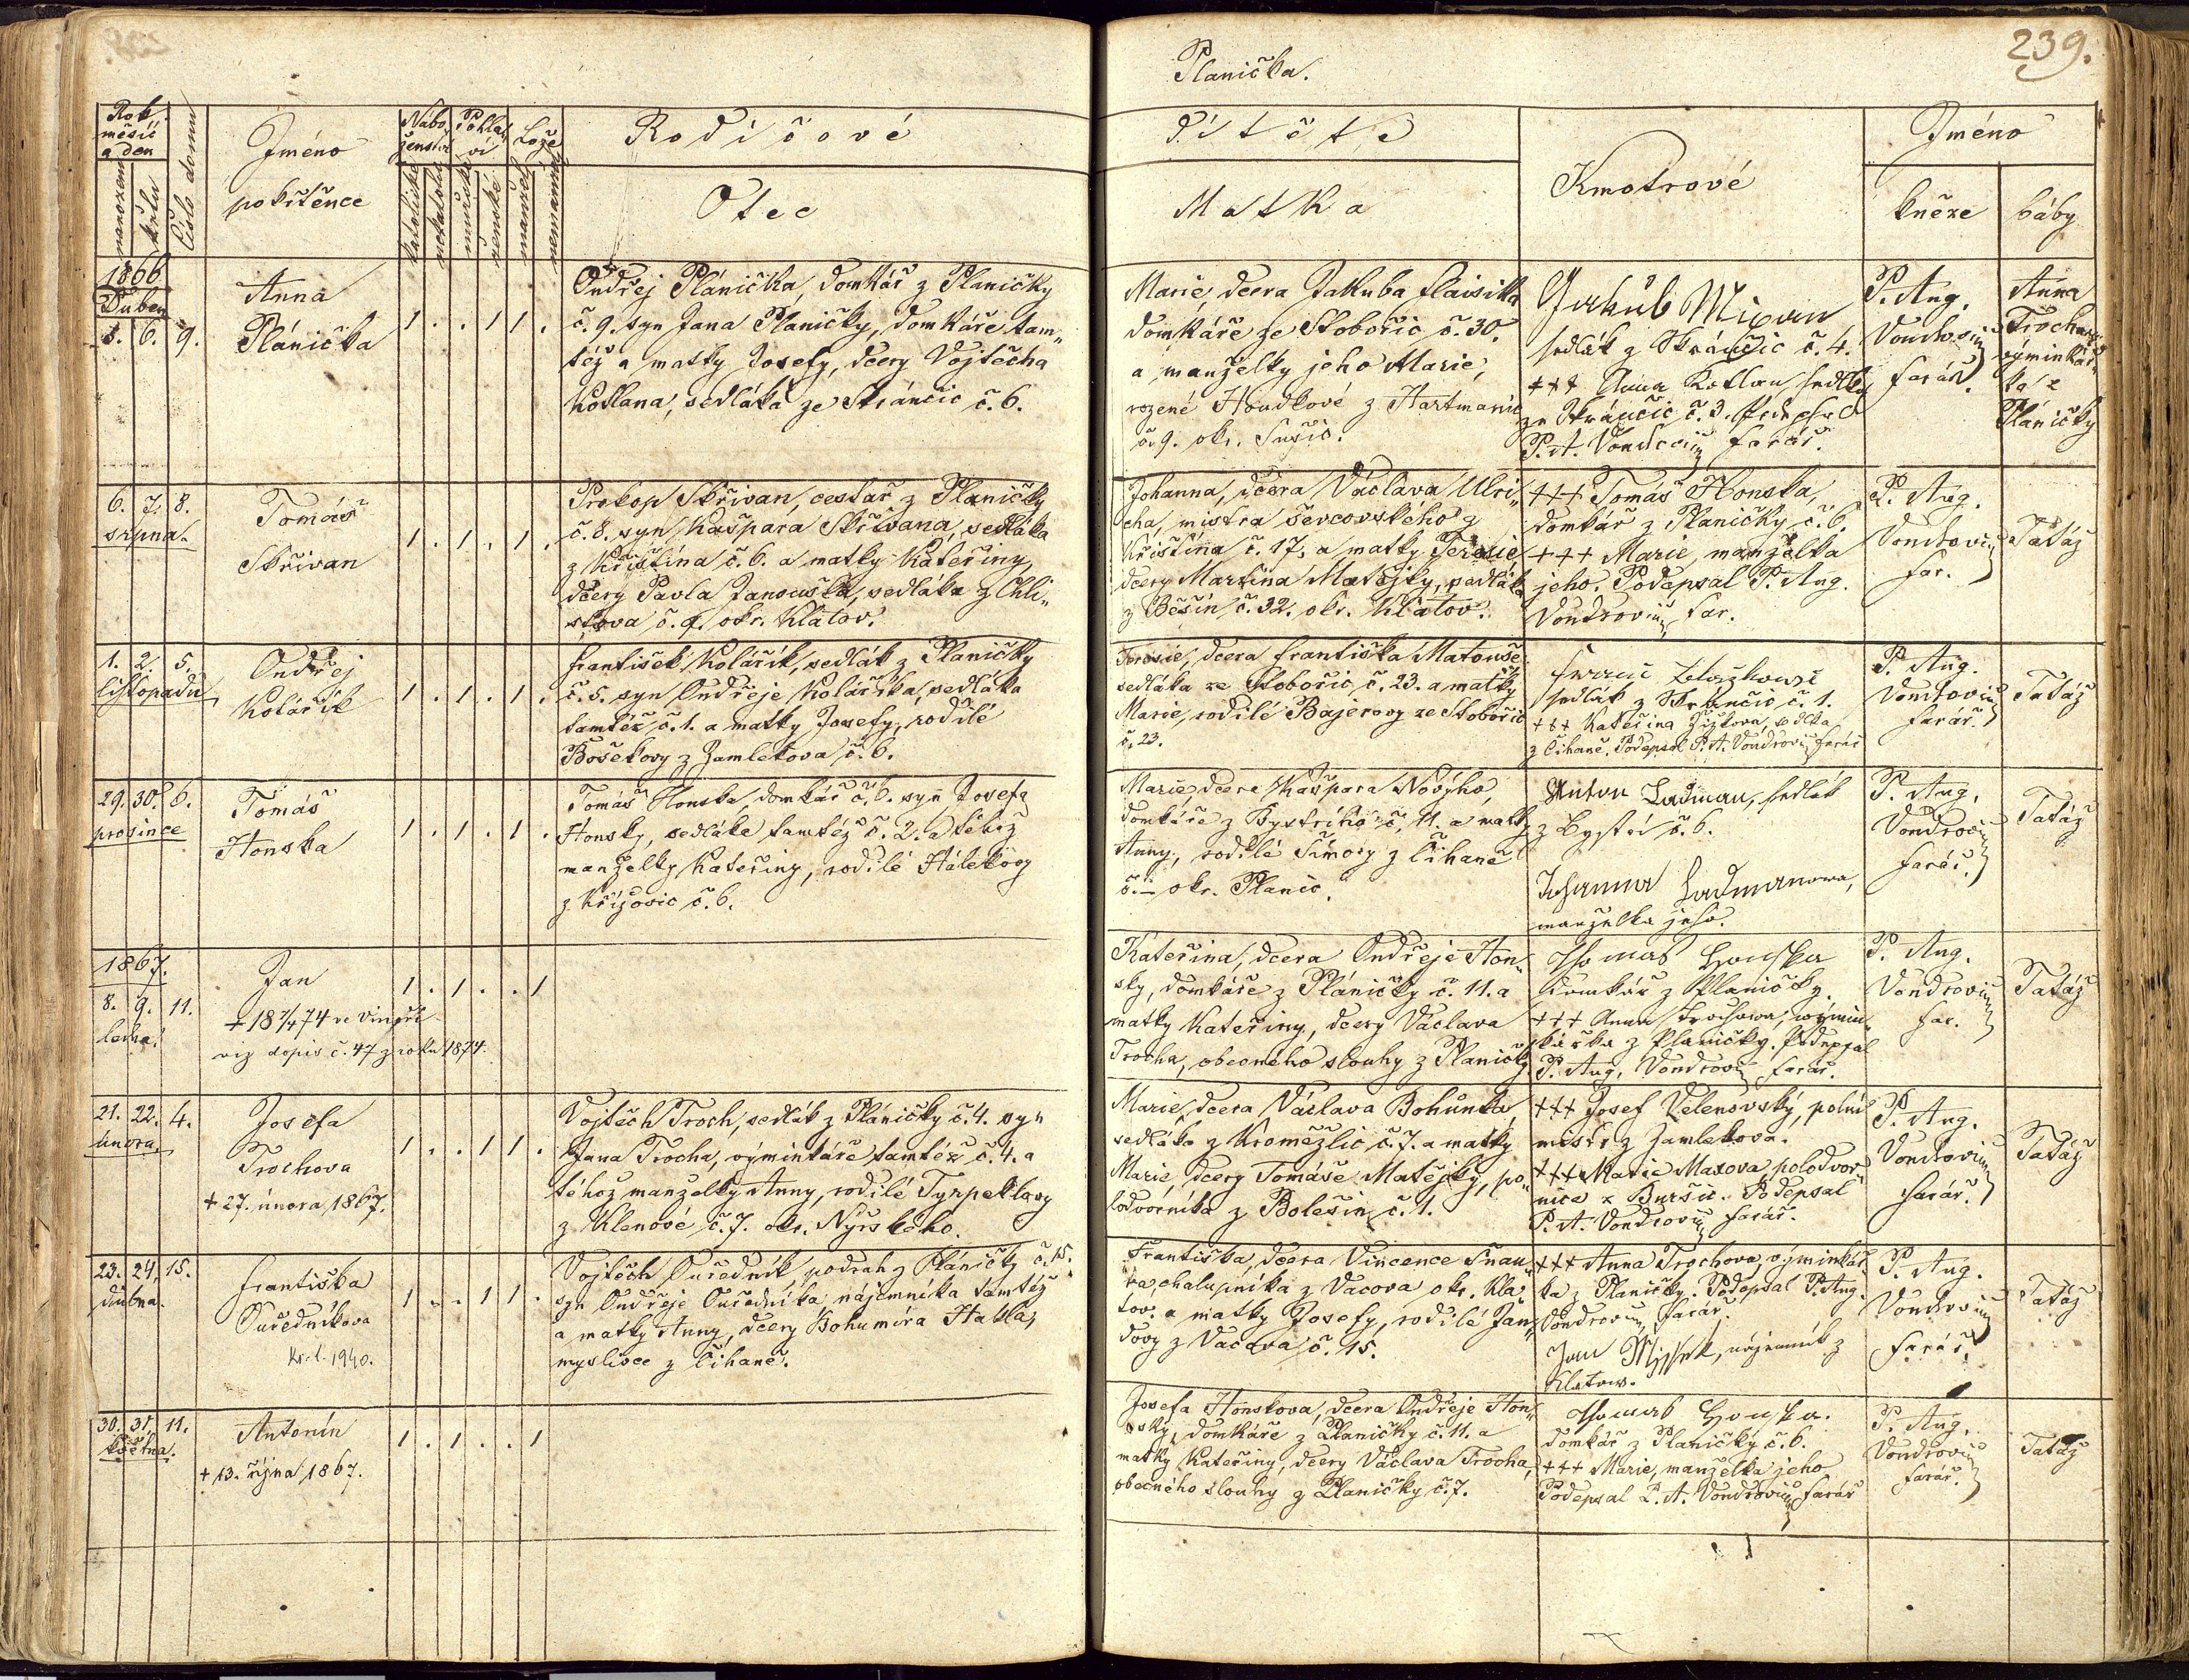 239.
Planička.
Rok
měsíc
a den
narození
křtu
Číslo domu
Jméno
pokřtěnce
Nábo-
ženství
katolické
Pohla-
ví
mužské
ženské
Lože
manžel.
nemanžel.
Rodičové
Otec
Dítěte
Matka
Kmotrové
Jméno
kněze
báby
1866
Duben
5. 6. 9.
Anna
Plánička
1 . . 1 1 .
Ondřej Plánička, domkář z Planičky
č. 9. syn Jana Planičky, domkáře tam„
též a matky Josefy, dcery Vojtěcha
Kotlana, sedláka ze Skránčic č. 6.
Marie, dcera Jakuba
domkáře ze Stobořic č. 30.
a manželky jeho Marie,
rozené Houdkové z Hartmanic
č. 9. okr. Sušic.
Jakub Mixan
sedlák z Skránčic č. 4.
+++ Anna Kotlan sedlka
ze Skránčic č. 3. Podepsal
P. A. Vondrovic farář.
P. Aug.
Vondrovic
farář.
Anna
Trochova
výminkář„
ka z
Pláničky
6. 7. 8.
srpna.
Tomáš
Skřivan
1 . 1 . 1 .
Prokop Skřivan, cestář z Planičky
č. 8. syn Kašpara Skřivana, sedláka
z Křištína č. 6. a matky Kateřiny,
dcery Pavla Janouška, sedláka z Chli„
stova č. 9. okr. Klatov.
Johanna, dcera Václava Ulri„
cha, mistra ševcovského z
Křištína č. 17, a matky Terezie,
dcery Martina Matějky, sedláka
z Běšin č. 32. okr. Klatov.
+++ Tomáš Honska,
domkář z Planičky č. 6.
+++ Marie, manželka
jeho. Podepsal P. Aug.
Vondrovic far.
P. Aug.
Vondrovic
far.
Tatáž
1. 2. 5.
listopadu
Ondřej
Kolářík
1 . 1 . 1 .
František Kolářík, sedlák z Planičky
č. 5. syn Ondřeje Koláříka, sedláka
tamtéž č. 1. a matky Josefy, rodilé
Bošekovy z Zamlekova č. 6.
Terezie, dcera Františka Matouše
sedláka ze Stobořic č. 23. a matky
Marie, rodilé Bajerovy ze Stobořic
č. 23.
sedlák z Skránčic č. 1.
+++ Kateřina Žižkova, sedlka
z Číhaně. Podepsal P. A. Vondrovic farář
P. Aug.
Vondrovic
farář.
Tatáž
29. 30. 6.
prosince
Tomáš
Honska
1 . 1 . 1 .
Tomáš Honska, domkář č. 6. syn Josefa
Honsky, sedláka tamtéž č. 2. a téhož
manželky Kateřiny, rodilé Hálekovy
z Křížovic č. 6.
Marie, dcera Kašpara Nového,
domkáře z Bystrého č. 11. a matky
Anny, rodilé Šímovy z Číhaně
č. – okr. Planic.
Anton Ladman, sedlák
z Bystré č. 6.
Johanna Ladmanowa,
manželka jeho.
P. Aug.
Vondrovic
farář.
Tatáž
1867.
8. 9. 11.
ledna.
Jan
+ 18 7/4 74 ve Vinoři
viz dopis č. 47 z roku 1874.
1 . 1 . . 1
Kateřina, dcera Ondřeje Hon„
sky, domkáře z Pláničky č. 11. a
matky Kateřiny, dcery Václava
Trocha, obecného slouhy z Planičky.
Thomas Honska
domkář z Planičky.
+++ Anna Trochowa, výmin„
kářka z Planičky. Podepsal
P. Aug. Vondrovic farář.
P. Aug.
Vondrovic
far.
Tatáž
21. 22. 4.
února.
Josefa
Trochova
+ 27. února 1867.
1 . . 1 1 .
Vojtěch Troch, sedlák z Pláničky č. 4. syn
Jana Trocha, výminkáře tamtéž č. 4. a
téhož manželky Anny, rodilé Tyrpeklovy
z Klenové č. 7. okr. Nýrského.
Marie, dcera Václava Bohůnka,
sedláka z Kroměždlic č. 7. a matky
Marie, dcery Tomáše Matějky, po„
lodvorníka z Bolešin č. 1.
+++ Josef Velenovský, polní
mistr z Zamlekova.
+++ Marie Maxova, polodvor„
nice z Buršic. Podepsal
P. A. Vondrovic farář.
P. Aug.
Vondrovic
farář.
Tatáž
23. 24. 15.
dubna.
Františka
Ouředníkova
1940.
1 . . 1 1 .
Vojtěch Ouředník, podruh z Pláničky č. 15.
syn Ondřeje Ouředníka, nájemníka tamtéž
a matky Anny, dcery Bohumíra Hakla,
myslivce z Číhaně.
Františka, dcera Vincence Šnau„
ra, chalupníka z Vacova okr. Kla„
tov. a matky Josefy, rodilé Jan„
dovy z Vacova č. 15.
+++ Anna Trochova, výminkář„
ka z Planičky. Podepsal P. Aug.
Vondrovic, farář.
Jan, nájemník z
Klatow.
P. Aug.
Vondrovic
farář.
Tatáž
30. 31. 11.
května.
Antonín
+ 13. října 1867.
1 . 1 . . 1
Josefa Honskova, dcera Ondřeje Hon„
sky, domkáře z Planičky č. 11. a
matky Kateřiny, dcery Václava Trocha,
obecného slouhy z Planičky č. 7.
Thomas Honska.
domkář z Planičky č. 6.
+++ Marie, manželka jeho
Podepsal P. A. Vondrovic farář
P. Aug.
Vondrovic
farář.
Tatáž